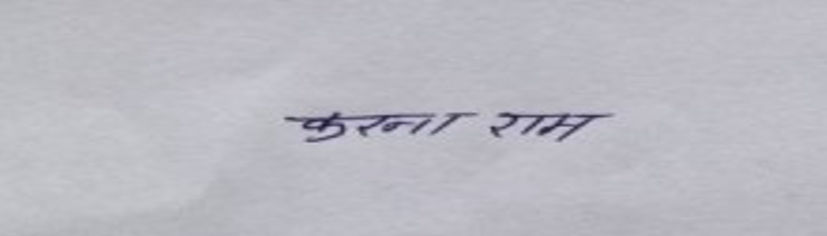 करना राम